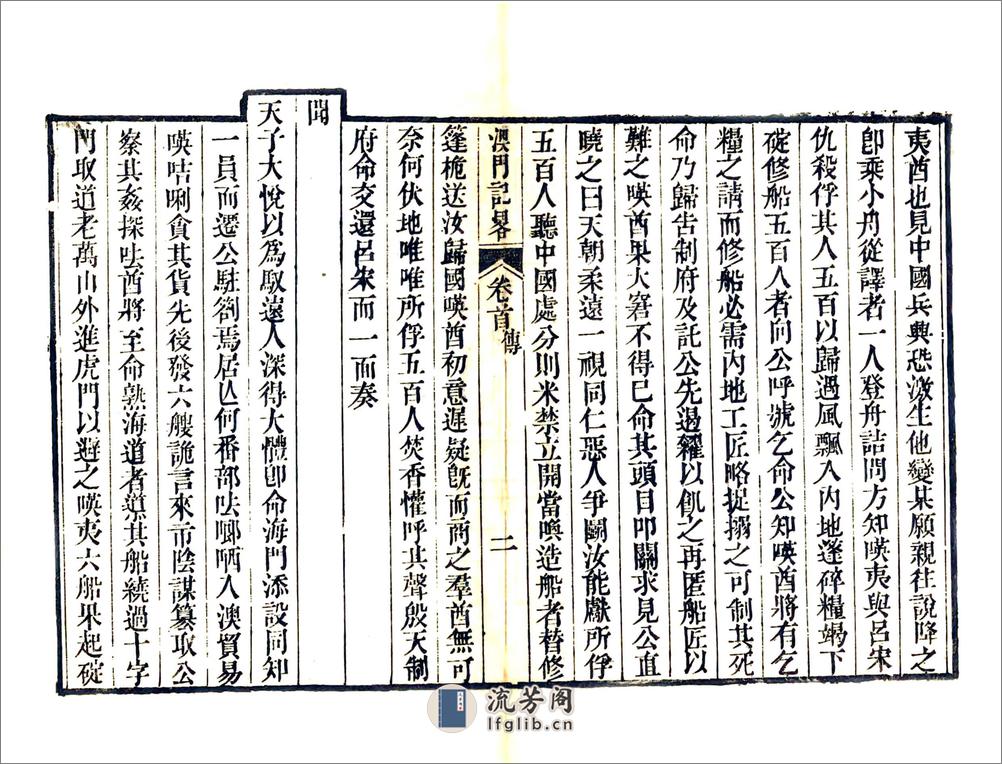 夷酋也見中國兵興恐激生他變某願親往說降之
卽乘小舟從譯者一人登舟詰問方知暎夷與呂宋
仇殺俘其人五百以歸遇風飄入內地篷碎糧竭下
碇修船五百人者向公呼號乞命公知暎酋將有乞
糧之請而修船必需內地工匠略捉搦之可制其死
命乃歸告制府及託公先遏糴以飢之再匿船匠以
難之暎酋果大窘不得已命其頭目叩關求見公直
曉之曰天朝柔遠一視同仁惡人爭鬬汝能獻所俘
五百人聽中國處分則米禁立開當喚造船者替修
澳門記畧 卷首 傳 二
篷桅送汝歸國暎酋初意遲疑旣而商之羣酋無可
奈何伏地唯唯所俘五百人焚香懽呼其聲殷天制
府命交還呂宋而一面奏
聞
天子大悅以爲馭遠人深得大體卽命海門添設同知
一員而遷公駐劄焉居亡何番部呿啷哂入澳貿易
暎咭唎貪其貨先後發六艘詭言來市陰謀篡取公
察其姦探呿酋將至命熟海道者導其船繞過十字
門取道老萬山外進虎門以避之暎夷六船果起碇
流芳阁
lfglib.cn